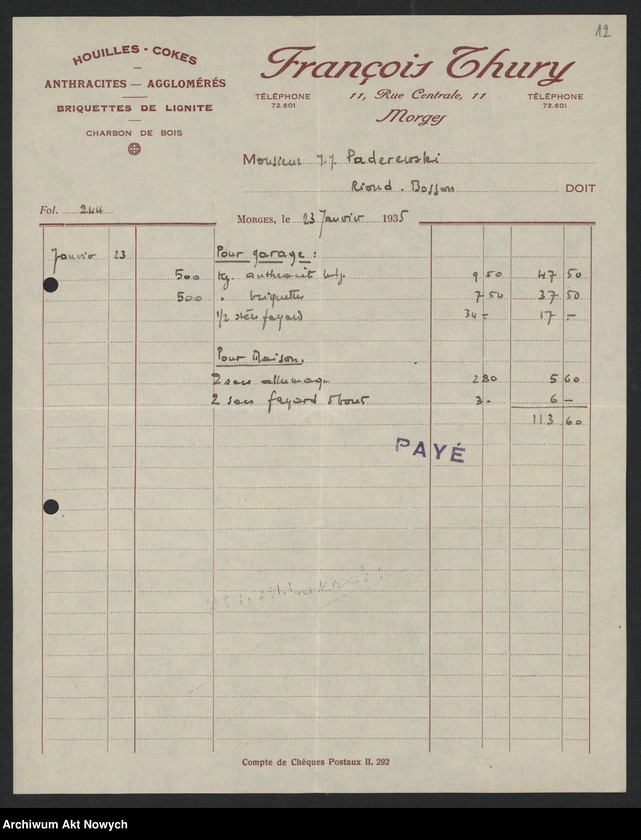 12
HOUILLES - COKES
ANTHRACITES — AGGLOMÉRÉS
BRIQUETTES DE LIGNITE
CHARBON DE BOIS
François Thury
TÉLÉPHONE 72.601
11, Rue Centrale, 11
TÉLÉPHONE 72.601
Morges
Monsieur J. J. Paderewski
Riond. Bosson DOIT
Fol. 244
MORGES, le 23 Janvier 1935
Janvier 23 Pour garage :
500 kg. anthracit 9 50 47 50
500 " briquettes 7 50 37 50
1/2 stère fayard 34 = 17 —
Pour Maison.
2 sacs allumage 2 80 5 60
2 sacs fayard 3 - 6 —
113 60
PAYÉ
Compte de Chèques Postaux II. 292
Archiwum Akt Nowych